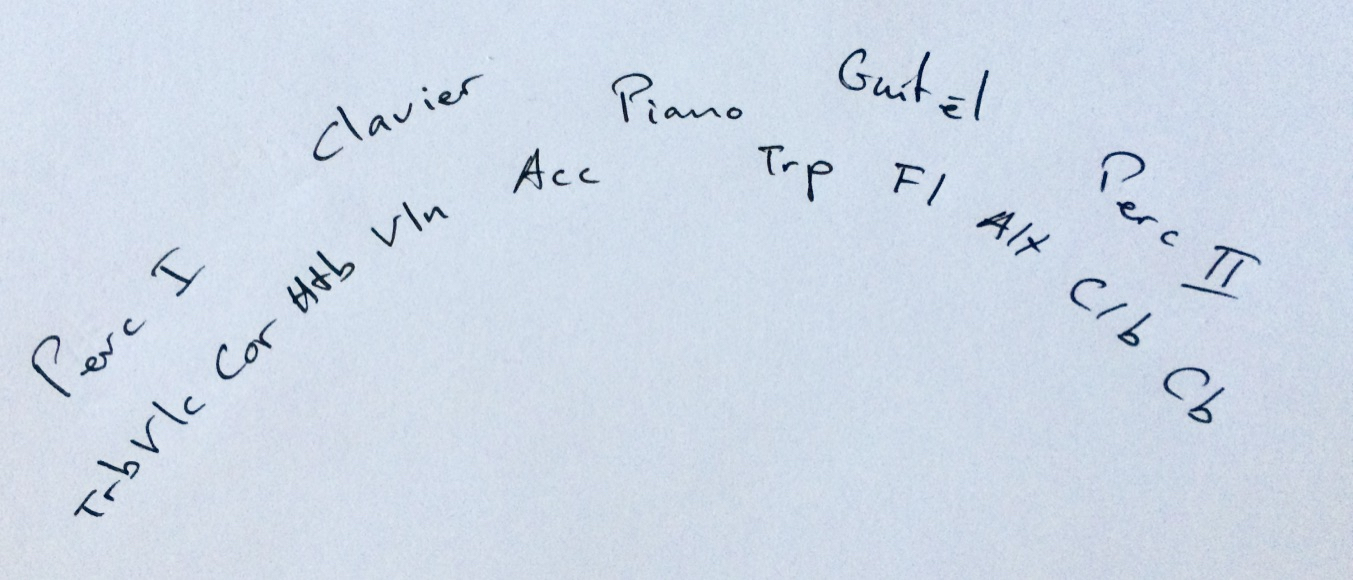 Perc I Clavier Piano Guit él Perc II
Trb Vlc Cor Htb Vln Acc Trp Fl Alt Clb Cb